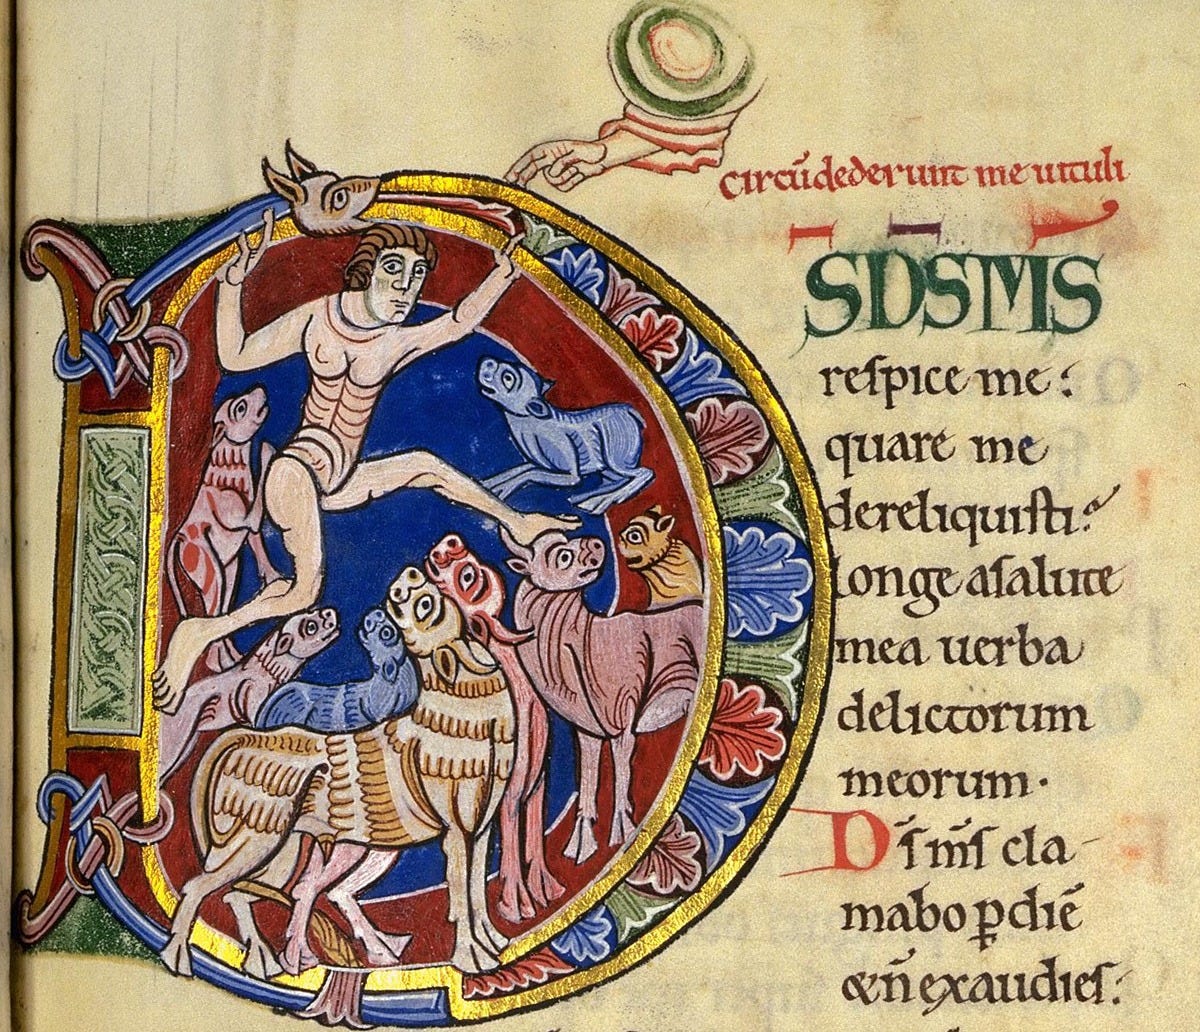 circū dederunt me uituli
DS̄ DS̄ MS̄
reſpice me:
quare me
dereliquiſti?
longe aſalute
mea uerba
delictorum
meorum.
Dſ̄ mſ̄ cla
mabo ꝑ diē
&n̄ exaudieſ: